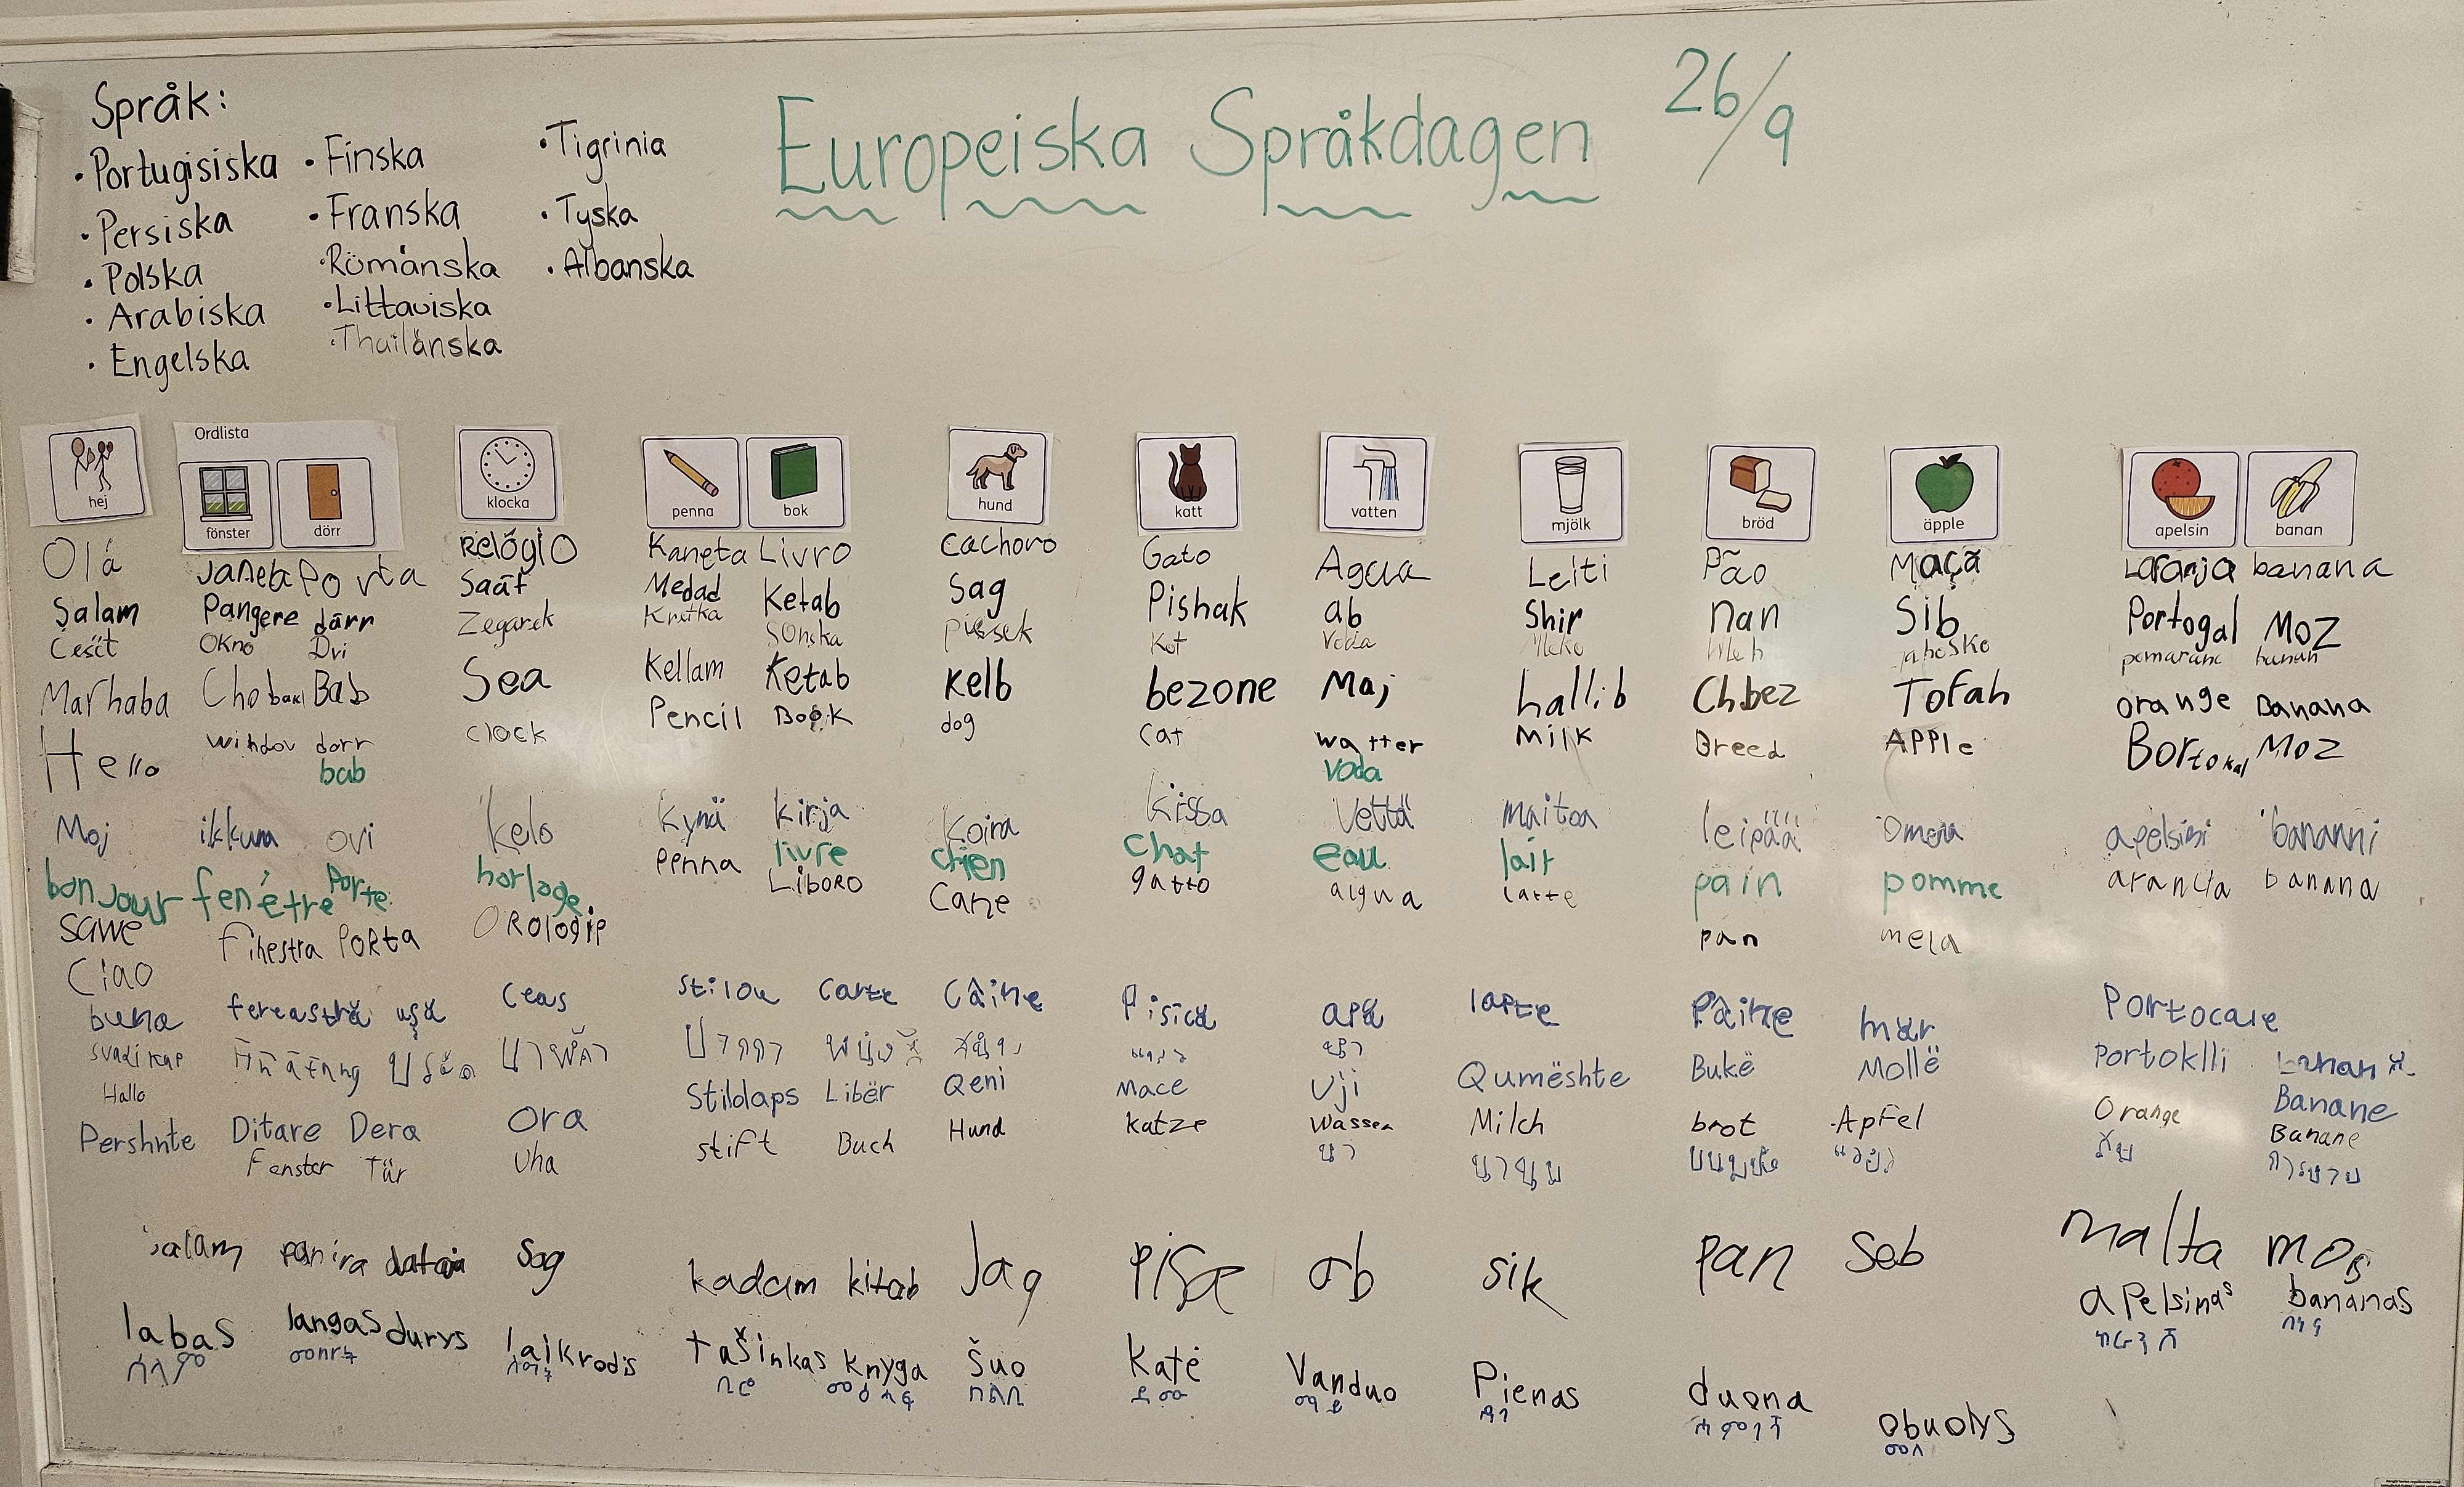 Europeiska Språkdagen 26/9
Språk:
• Portugisiska
• Persiska
• Polska
• Arabiska
• Engelska
• Finska
• Franska
• Romänska
• Littauiska
• Thailänska
• Tigrinia
• Tyska
• Albanska
Ordlista
hej fönster dörr klocka penna bok hund katt vatten mjölk bröd äpple apelsin banan
Olá Janela Porta Relógio Kaneta Livro Cachoro Gato Agua Leiti Pão Maçã Laranja banana
Salam Pangere därr Saät Medad Ketab Sag Pishak ab Shir nan Sib Portogal Moz
Cešct Okno Dvi Zegarek Kretka Kot Voda Mleko jabosko banan
Marhaba Chobaki Bab Sea Kellam Ketab Kelb bezone Maj hallib Chbez Tofah orange Banana
Hello windov dorr clock Pencil Book dog cat watter Milk Breed APPle Bortokal Moz
bab Voda
Moj ikkuna ovi kelo kynä kirja Koira kissa Vettä maitoa leipää omena apelsini bananni
bonjour fenétre Porte horloge Penna livre chien chat eau lait pain pomme
sawe Finestra PORta Orologio Liboro Cane gatto aigua Latte pan mela arancia banana
Ciao
buna fereastră ușă Ceas stilou carte Câine Pisică apă lapte Pâine măr Portocale
svadikap
Hallo Stildaps Libër Qeni Mace Uji Qumështe Bukë Mollë Portoklli Banane
Pershnte Ditare Dera Ora
Fenster Tür Uha stift Buch Hund katze Wasser Milch brot Apfel Orange Banane
salam panira Sag kadam kitab Jag ab sik pan Seb malta mos
labas langas durys laikrodis tašinkas knyga šuo Katė Vanduo Pienas duona obuolys aPelsinas bananas